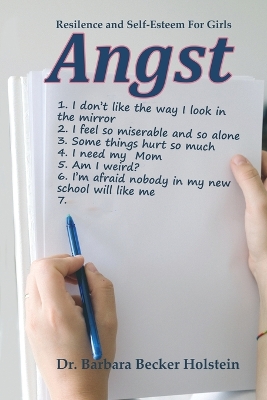 Resilence and Self-Esteem For Girls
Angst
1. I don't like the way I look in
the mirror
2. I feel so miserable and so alone
3. Some things hurt so much
4. I need my Mom
5. Am I weird?
6. I'm afraid nobody in my new
school will like me
7.
Dr. Barbara Becker Holstein